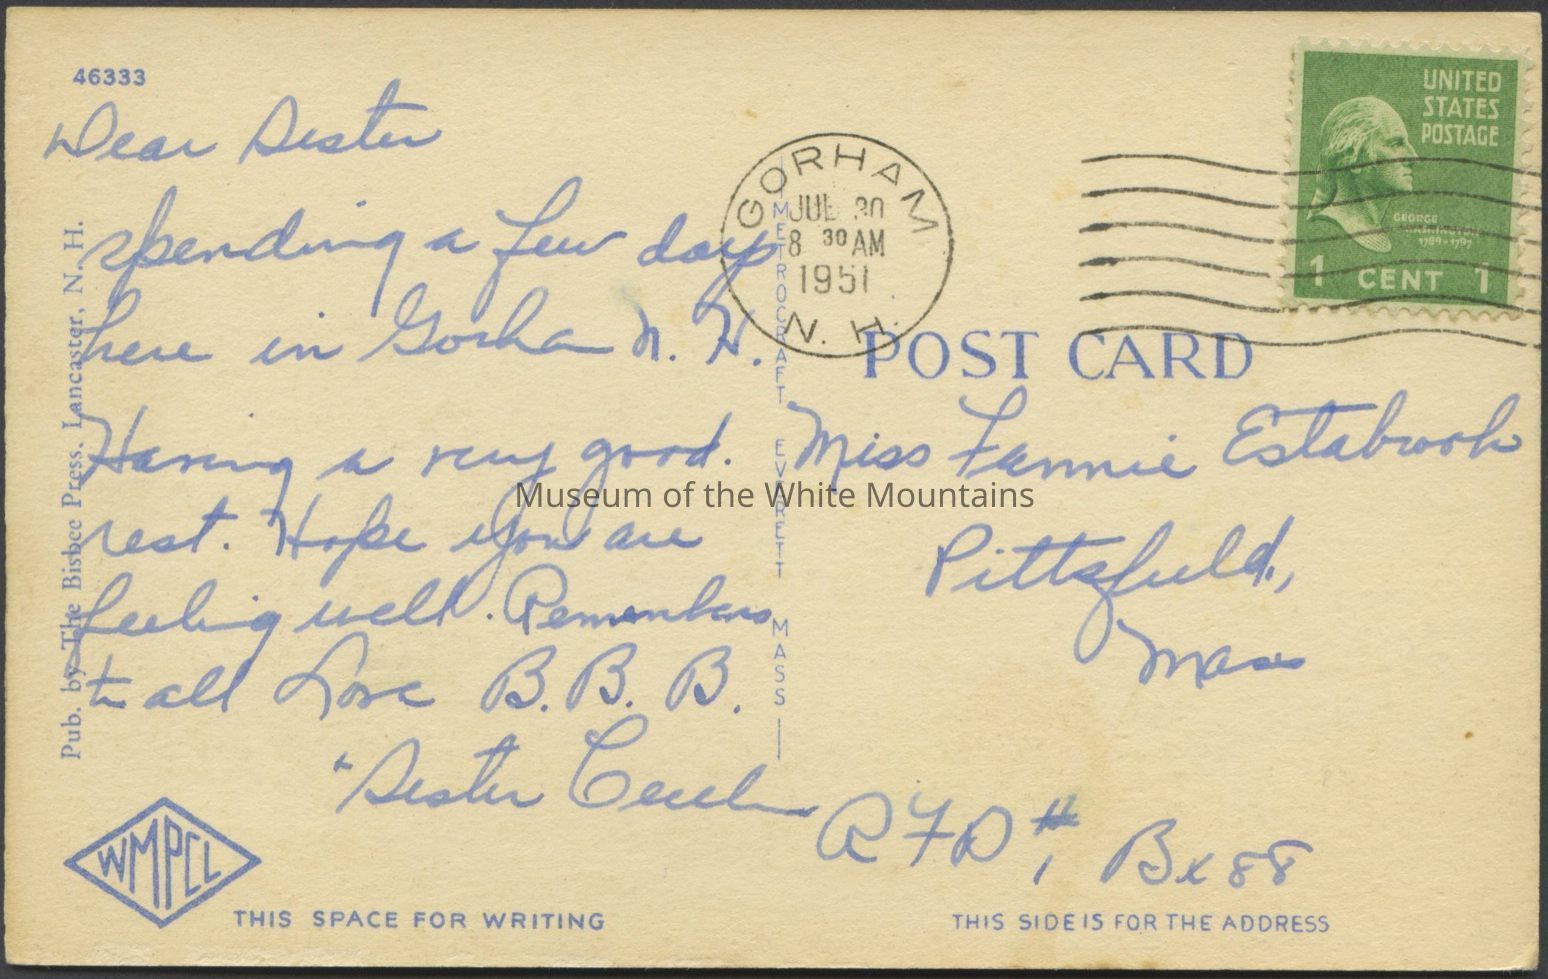 46333
Dear Sister
spending a few days
here in Gorham N. H.
Having a very good.
rest. Hope you are
feeling well. Remembers
to all Love B. B. B.
"Sister
Pub. by The Bisbee Press, Lancaster, N. H.
WMPCL
THIS SPACE FOR WRITING
METROCRAFT EVERETT MASS
GORHAM
JUL 30
8 30 AM
1951
N. H.
UNITED
STATES
POSTAGE
GEORGE
WASHINGTON
1789-1797
1 CENT 1
POST CARD
Miss Fannie Estabrook
Pittsfield,
Mass
RFD #1 Bx 88
THIS SIDE IS FOR THE ADDRESS
Museum of the White Mountains